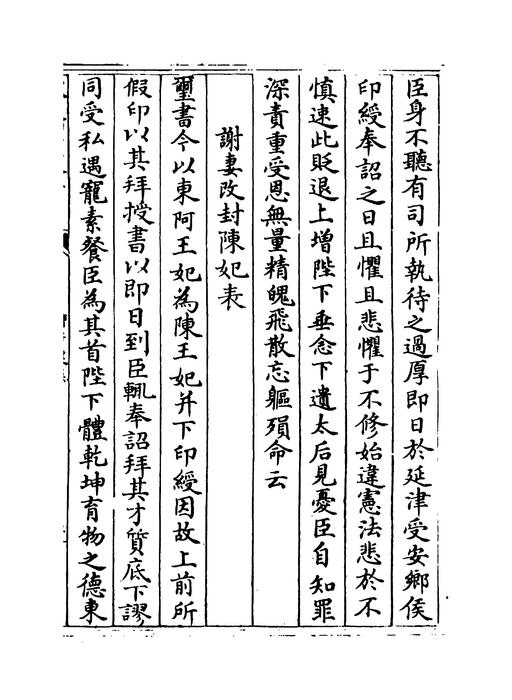 臣身不聽有司所執待之過厚即日於延津受安鄉侯
印綬奉詔之日且懼且悲懼于不修始違憲法悲於不
慎速此貶退上增陛下垂念下遺太后見憂臣自知罪
深責重受恩無量精魄飛散忘軀殞命云
謝妻改封陳妃表
璽書今以東阿王妃為陳王妃并下印綬因故上前所
假印以其拜授書以即日到臣輒奉詔拜其才質底下謬
同受私遇寵素餐臣為其首陛下體乾坤育物之德東